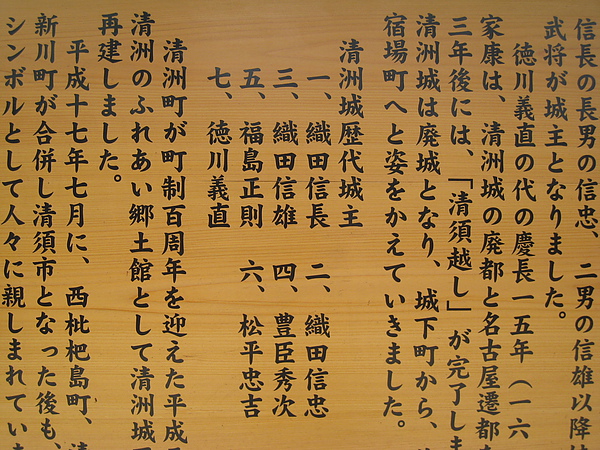 信長の長男の信忠、二男の信雄以降
武将が城主となりました。
徳川義直の代の慶長一五年(一六
家康は、清洲城の廃都と名古屋遷都を
三年後には、「清須越し」が完了しま
清洲城は廃城となり、城下町から、
宿場町へと姿をかえていきました。
清洲城歴代城主
一、織田信長 二、織田信忠
三、織田信雄 四、豊臣秀次
五、福島正則 六、松平忠吉
七、徳川義直
清洲町が町制百周年を迎えた平成
清洲のふれあい郷土館として清洲城
再建しました。
平成十七年七月に、西枇杷島町、清
新川町が合併し清須市となった後も、
シンボルとして人々に親しまれてい